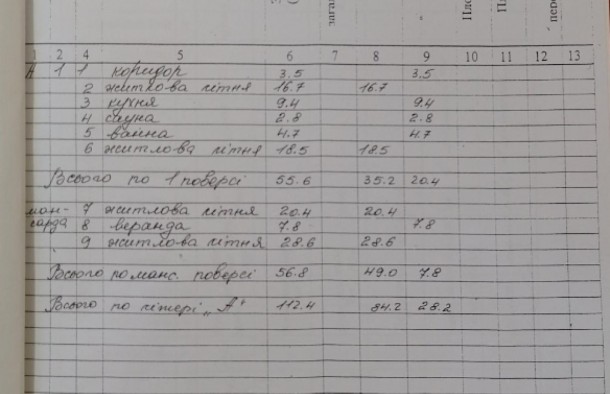 1 2 4 5 6 7 8 9 10 11 12 13
А 1 1 коридор 3.5 3.5
2 житлова літня 16.7 16.7
3 кухня 9.4 9.4
4 сауна 2.8 2.8
5 ванна 4.7 4.7
6 житлова літня 18.5 18.5
Всього по 1 поверсі 55.6 35.2 20.4
ман- 7 житлова літня 20.4 20.4
сарда 8 веранда 7.8 7.8
9 житлова літня 28.6 28.6
Всього по манс. поверсі 56.8 49.0 7.8
Всього по літері „А" 112.4 84.2 28.2